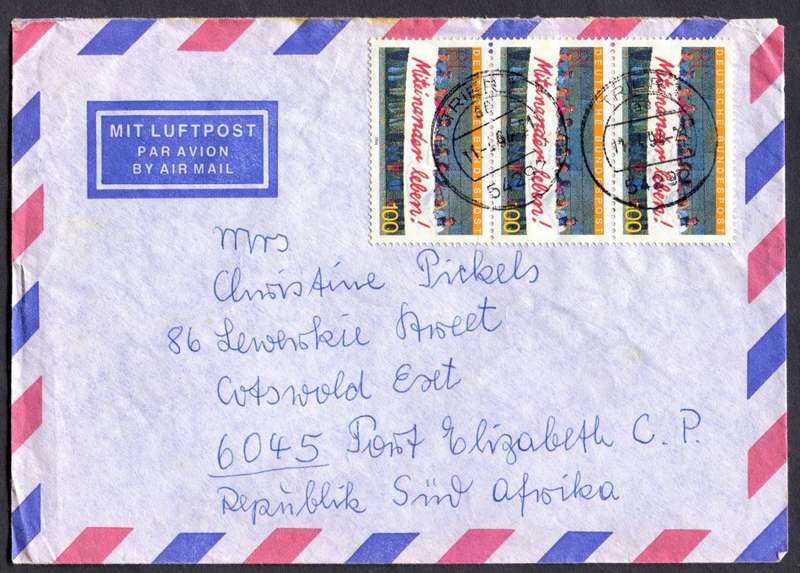 MIT LUFTPOST
PAR AVION
BY AIR MAIL
DEUTSCHE BUNDESPOST
Miteinander leben!
100
DEUTSCHE BUNDESPOST
Miteinander leben!
100
DEUTSCHE BUNDESPOST
Miteinander leben!
100
TRIER
TRIER
Mrs
Christine Pickels
86 Lewerkie Street
Cotswold Ext
6045 Port Elizabeth C.P.
Republik Süd Afrika